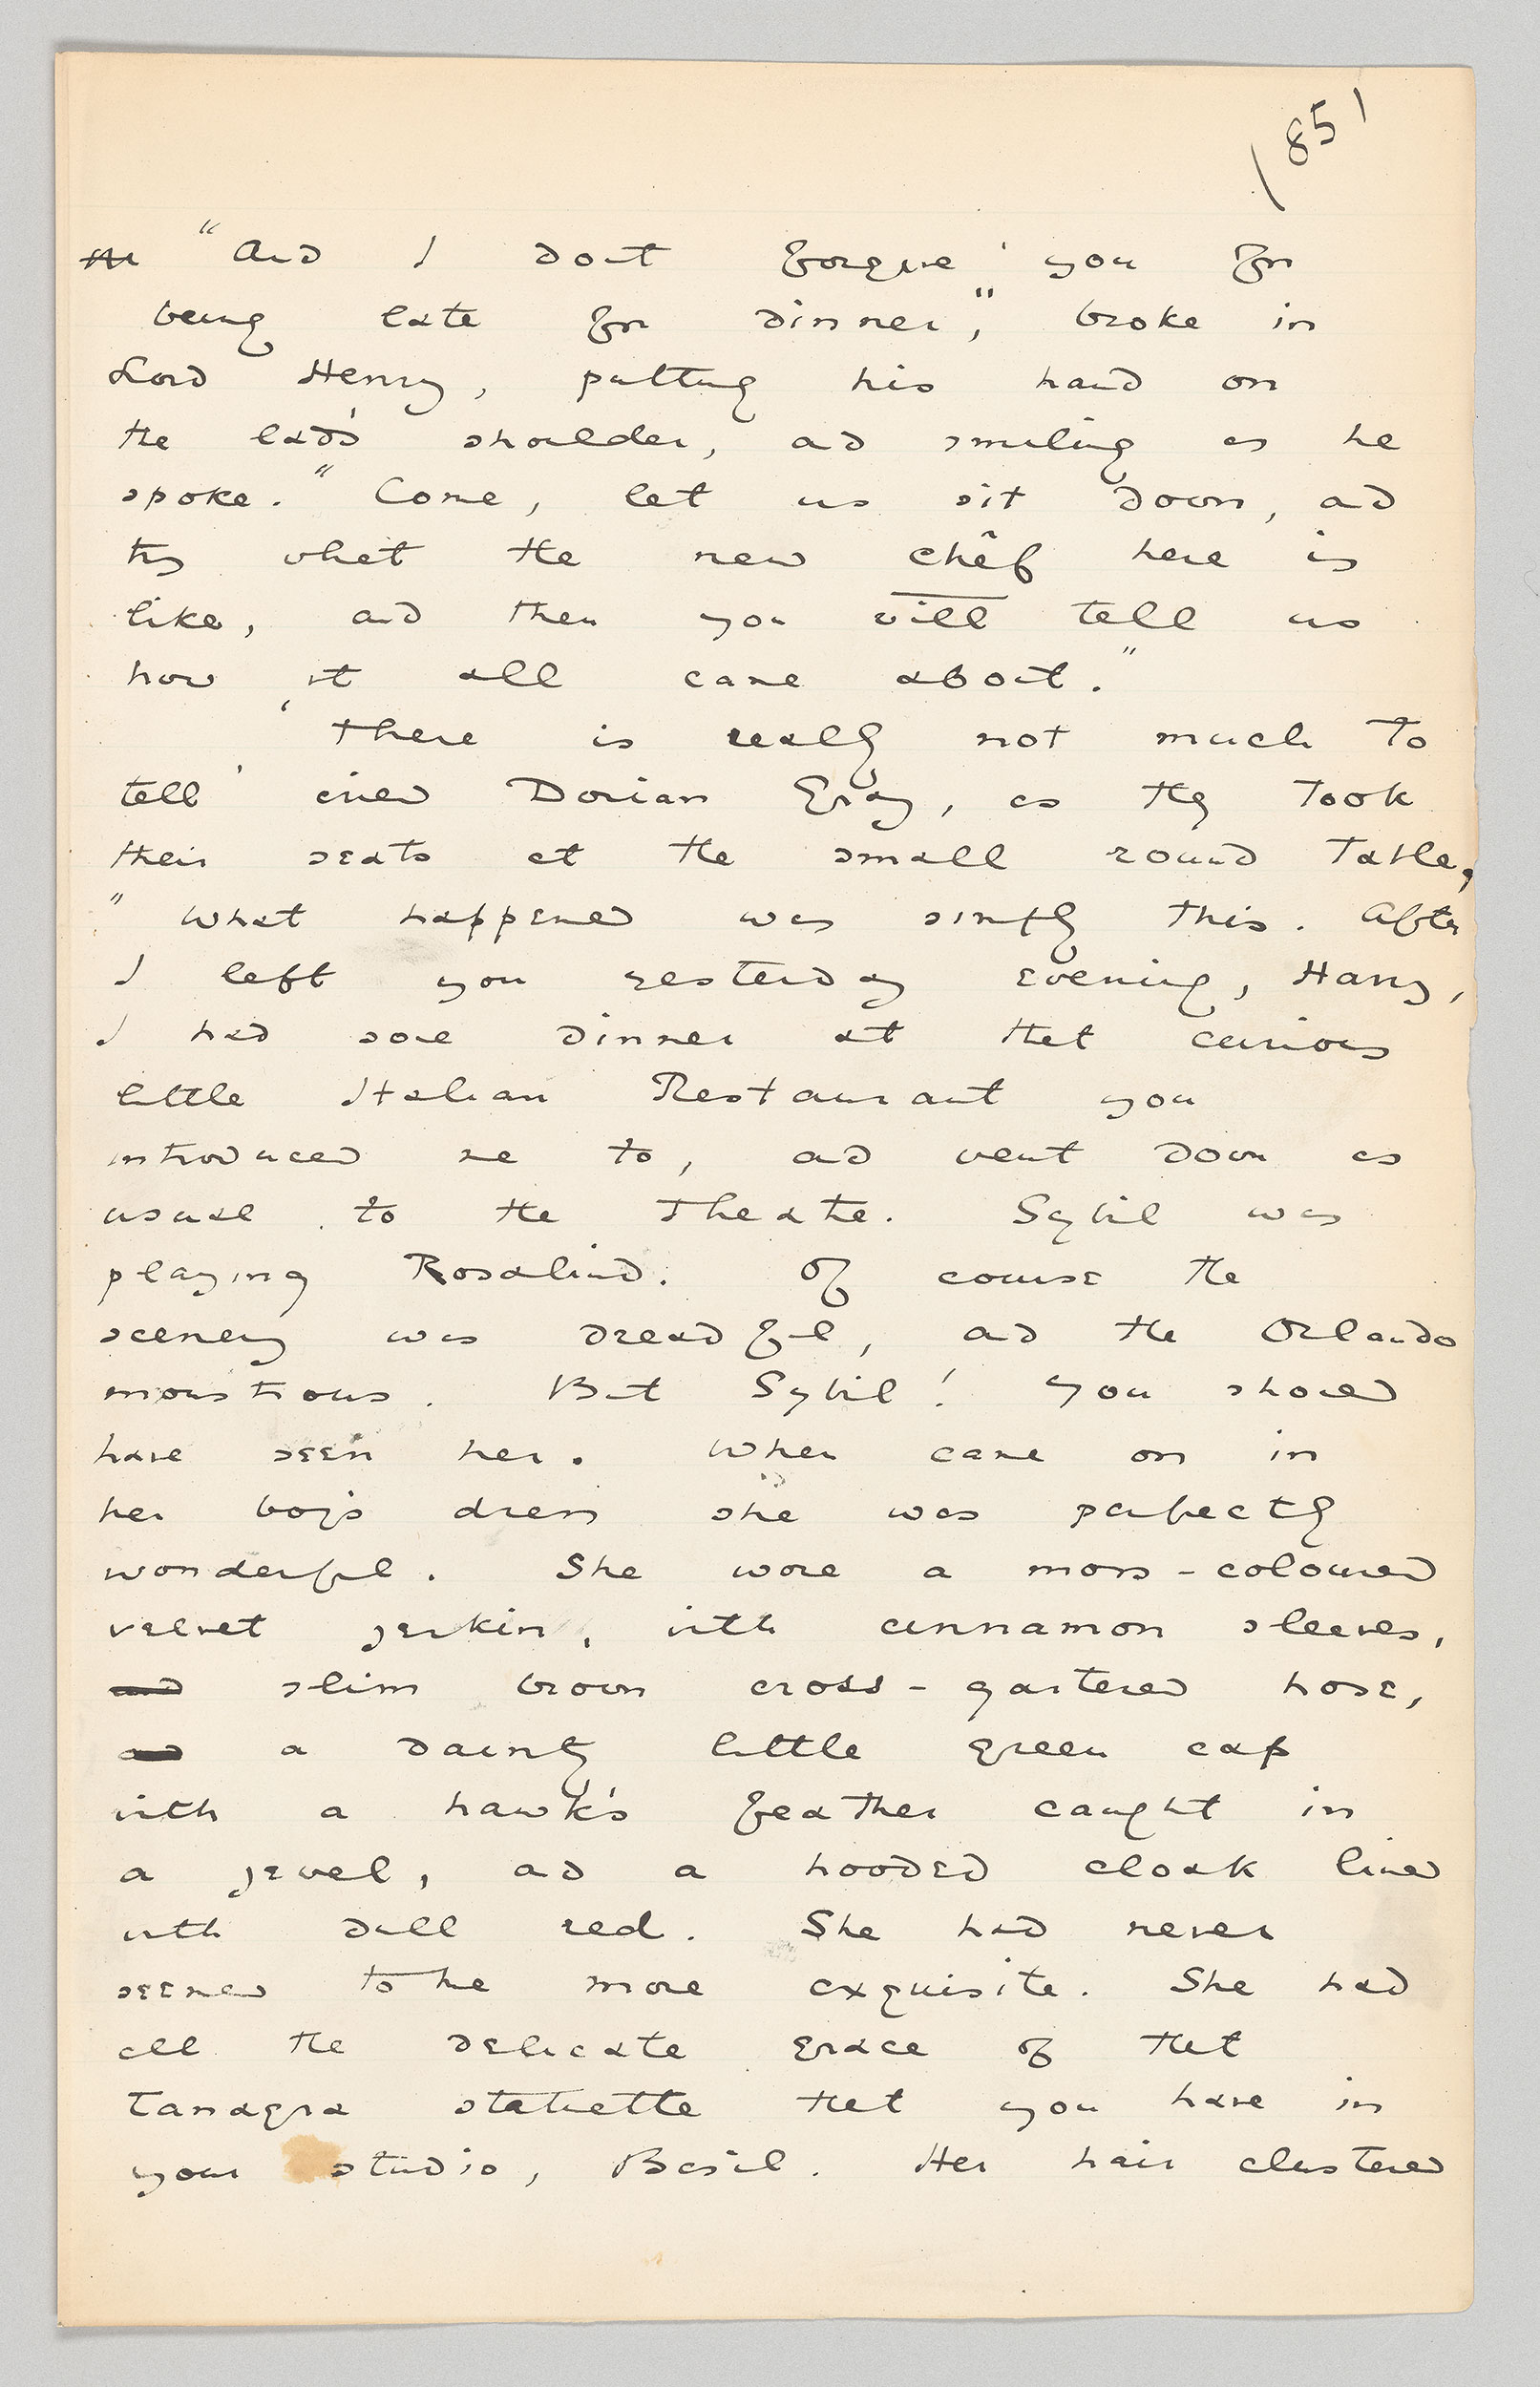 (85)
"And I don't forgive you for
being late for dinner," broke in
Lord Henry, putting his hand on
the lad's shoulder, and smiling as he
spoke. "Come, let us sit down, and
try what the new chêf here is
like, and then you will tell us
how it all came about."
'There is really not much to
tell' cried Dorian Gray, as they took
their seats at the small round table,
"What happened was simply this. After
I left you yesterday evening, Harry,
I had some dinner at that curious
little Italian Restaurant you
introduced me to, and went down as
usual to the Theatre. Sybil was
playing Rosalind. Of course the
scenery was dreadful, and the Orlando
monstrous. But Sybil! You should
have seen her. When came on in
her boy's dress she was perfectly
wonderful. She wore a moss-coloured
velvet jerkin, with cinnamon sleeves,
and slim brown cross-gartered hose,
and a dainty little green cap
with a hawk's feather caught in
a jewel, and a hooded cloak lined
with dull red. She had never
seemed to me more exquisite. She had
all the delicate grace of that
Tanagra statuette that you have in
your studio, Basil. Her hair clustered